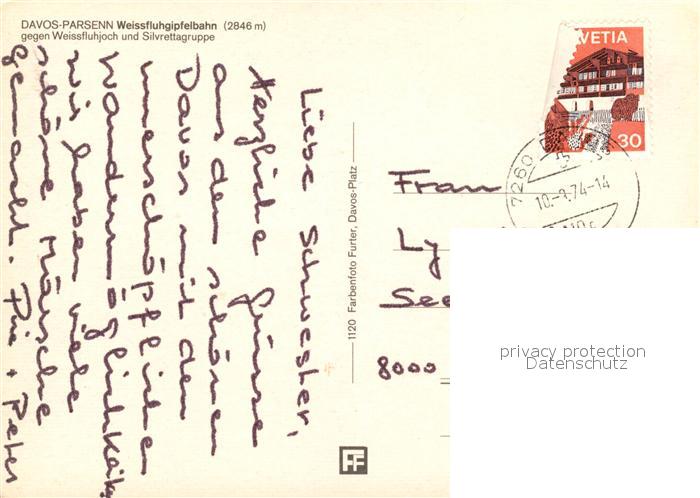 DAVOS-PARSENN Weissfluhgipfelbahn (2846 m)
gegen Weissfluhjoch und Silvrettagruppe
Liebe Schwester,
Herzliche Grüsse
aus dem schönen
Davos mit den
unerschöpflichen
Wandermöglichkeiten
wir haben viele
schöne Märsche
gemacht. Pia + Peter
1120 Farbenfoto Furter, Davos-Platz
FF
HELVETIA
30
7260 D
10.-9.74-14
Frau
Ly
See
8000
privacy protection
Datenschutz